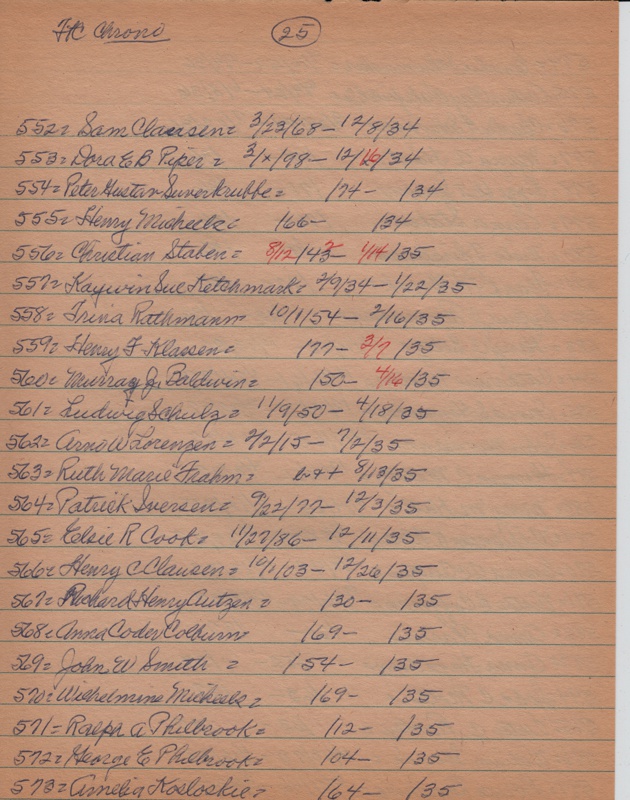 FHC Chrono 25
552= Sam Claussen= 3/23/68- 12/8/34
553= Dora E B Piper= 3/x/98- 12/16/34
554= Peter Gustav Suverkrubbe= /74- /34
555= Henry Micheels= /66- /34
556= Christian Staben= 8/12/43- 1/14/35
557= Kaywin Sue Ketchmark= 2/9/34- 1/22/35
558= Trina Rathmann= 10/1/54- 2/16/35
559= Henry F Klassen= /77- 3/7/35
560= Murray J. Baldwin= /50- 4/16/35
561= Ludwig Schulz= 11/9/50- 4/18/35
562= Arno W Lorenzen= 2/2/15- 7/2/35
563= Ruth Marie Frahm= b++ 8/13/35
564= Patrick Iversen= 9/22/77- 12/3/35
565= Elsie R Cook= 11/27/86- 12/11/35
566= Henry C Clausen= 10/1/03- 12/26/35
567= Richard Henry Autzen= /30- /35
568= Anna Coder Colburn= /69- /35
569= John W Smith = /54- /35
570= Wilhelmine Micheels= /69- /35
571= Ralph A Philbrook= /12- /35
572= George E Philbrook= /04- /35
573= Amelia Kosloskie= /64- /35